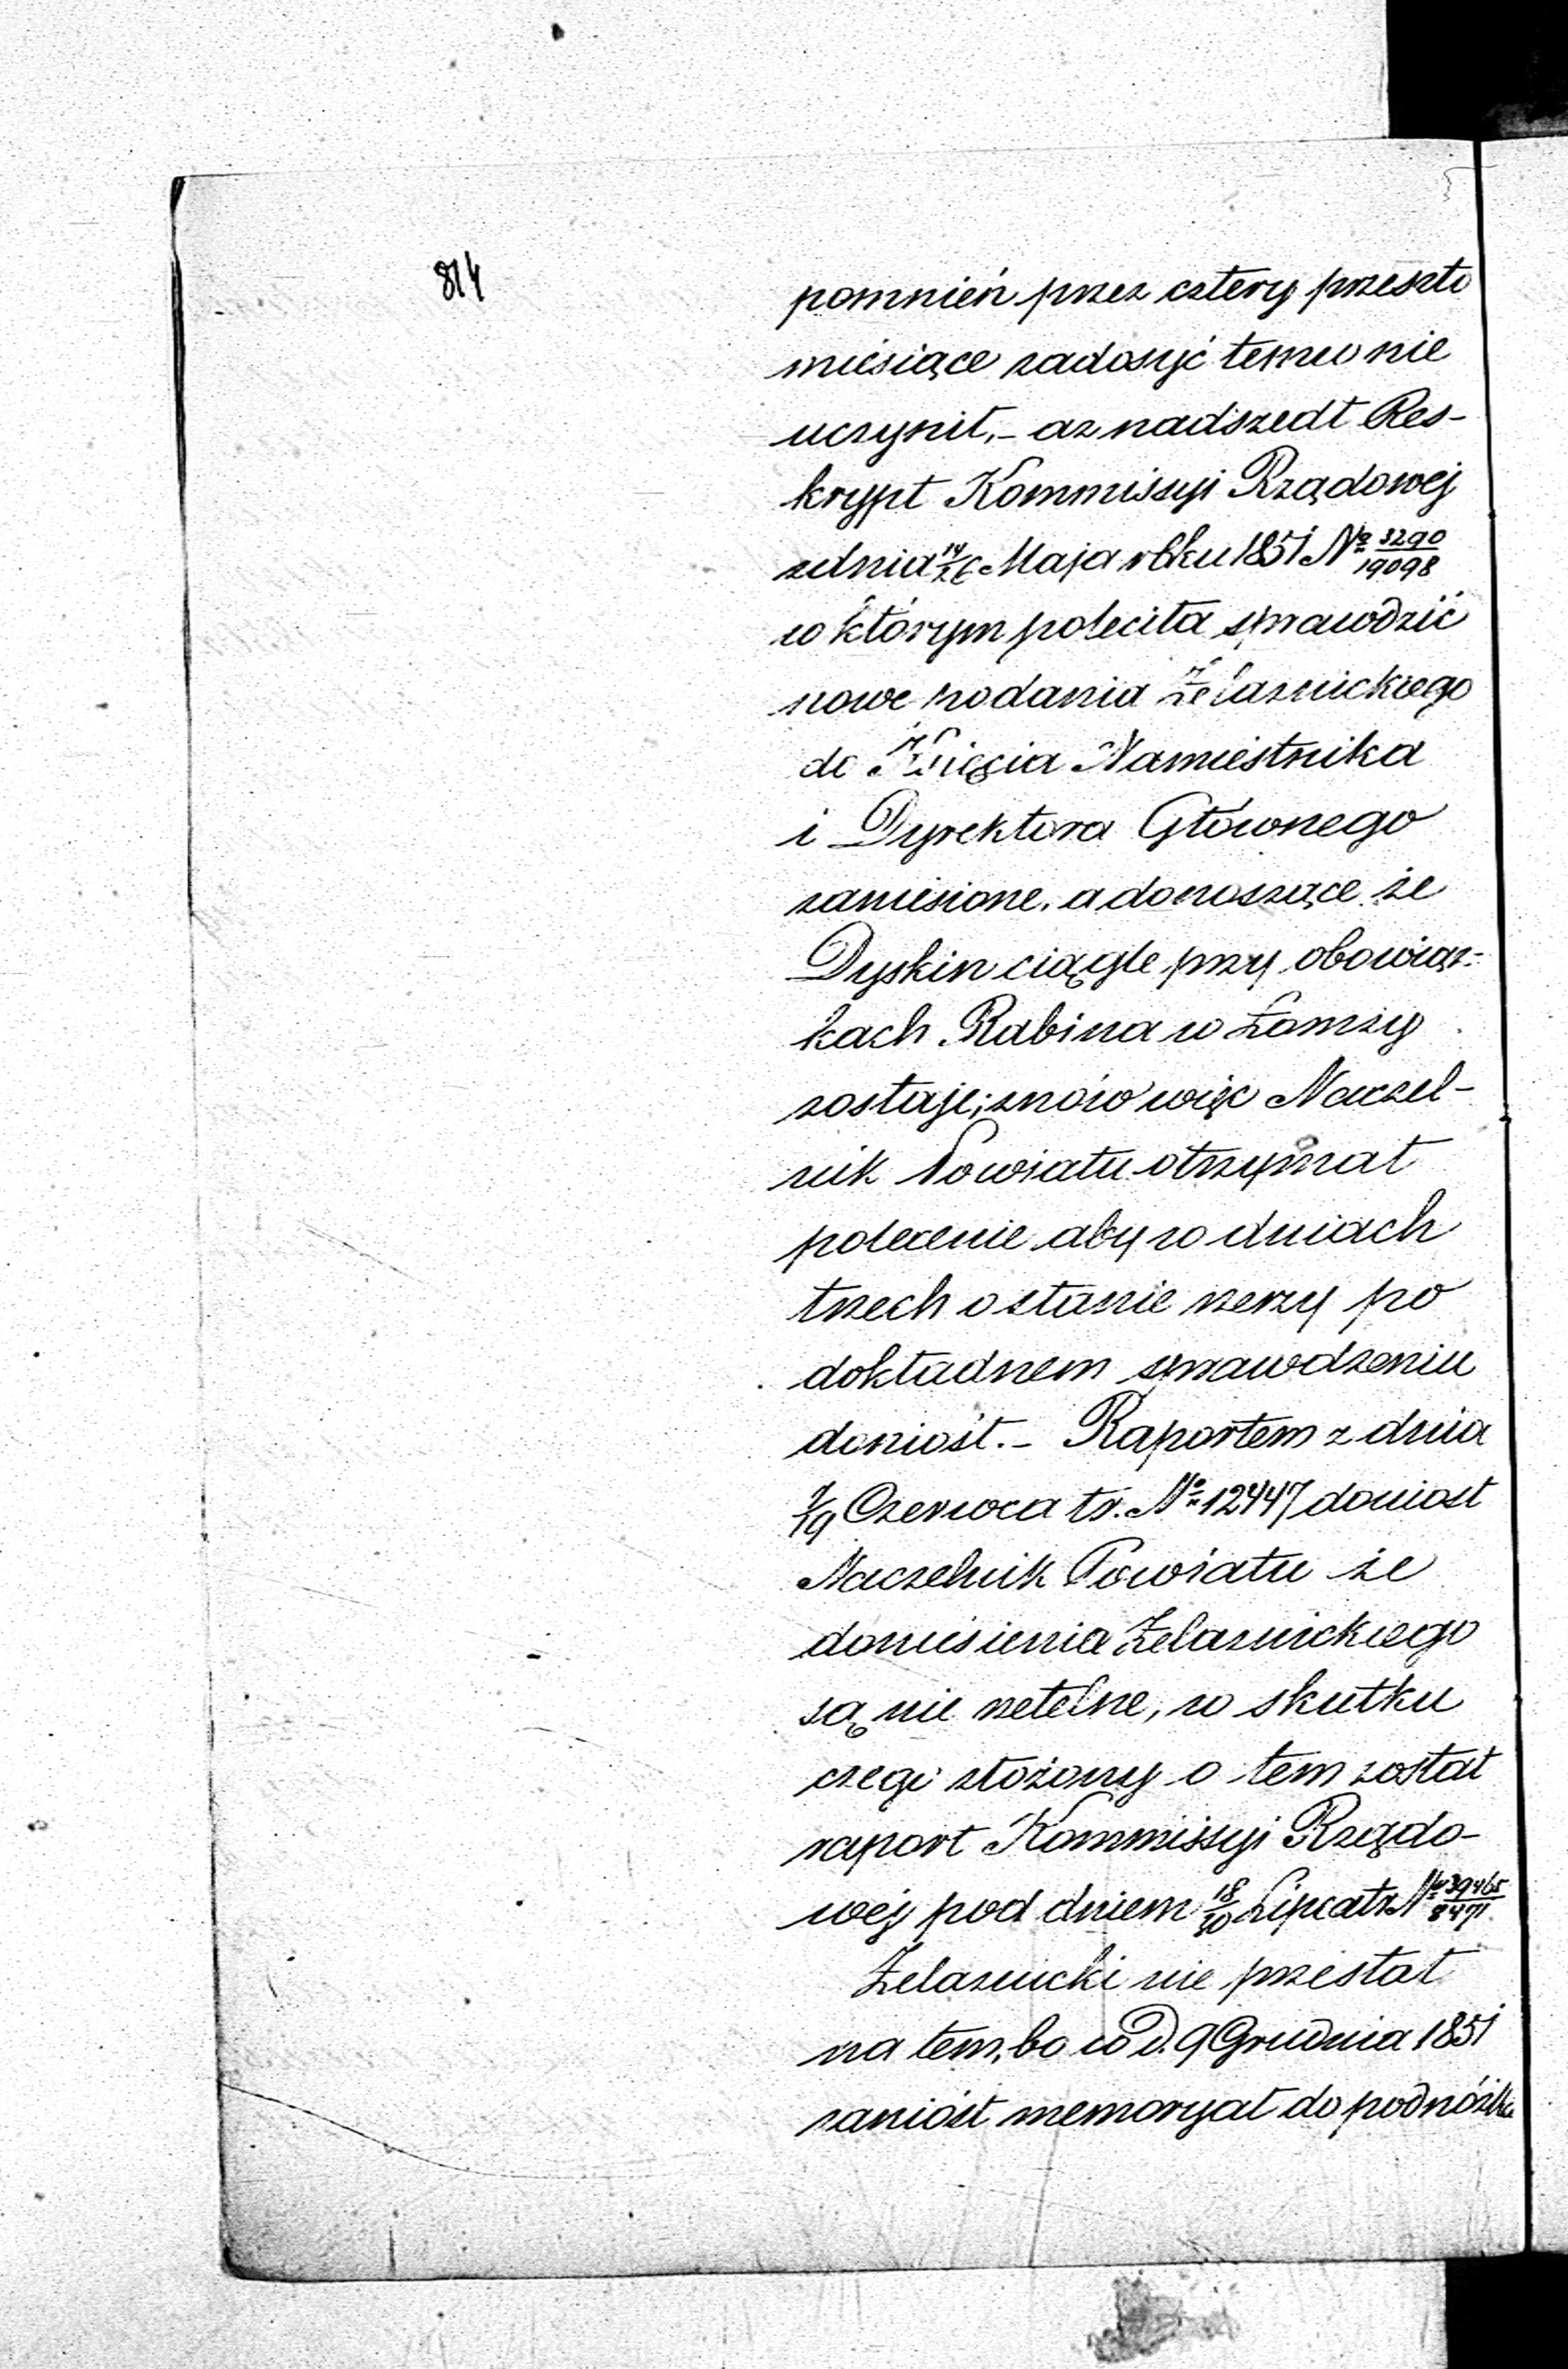 814
pomnień przez cztery przeszło
miesiące zadosyć temu nie
uczynił,- aż nadszedł Res-
krypt Kommissyi Rządowej
zdnia 14/26 Maja roku 1851 No 3290/19098
w którym poleciła sprawdzić
nowe podania Żelaznickiego
do Księcia Namiestnika
i Dyrektora Głównego
zaniesione, a donoszące że
Dyskin ciągle przy obowiąz-
kach Rabina w Łomży
zostaje; znów więc Naczel-
nik Powiatu otrzymał
polecenie aby w dniach
trzech o stanie rzeczy po
dokładnem sprawdzeniu
doniósł.- Raportem z dnia
7/19 Czerwca tr. No 12447 doniosł
Naczelnik Powiatu że
doniesienia Żelaznickiego
są nie rzetelne, w skutku
czego złożony o tem został
raport Kommissyi Rządo-
wej pod dniem 18/30 Lipca tr No 39465/8471.
Żelaznicki nie przestał
na tem, bo w D. 9 Grudnia 1851
zaniósł memoryał do podnóżka